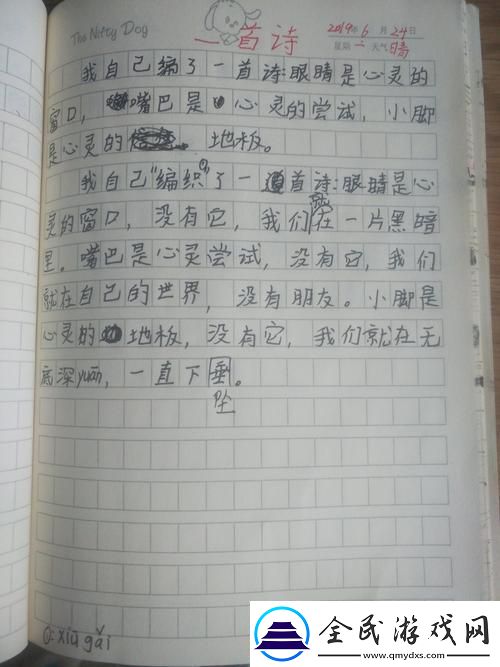 The Nifty Dog
一首诗
2019年6月24日
星期二 天气晴
我自己编了一首诗:眼睛是心灵的
窗口,嘴巴是心灵的尝试,小脚
是心灵的 地板。
我自己“编织”①了一首诗:眼睛是心
灵的窗口,没有它,我们就在一片黑暗
里。嘴巴是心灵尝试,没有它,我们
就在自己的世界,没有朋友。小脚是
心灵的地板,没有它,我们就在无
底深yuān,一直下垂。
坠
①:xiū gǎi
全民游戏网
www.qmydxs.com